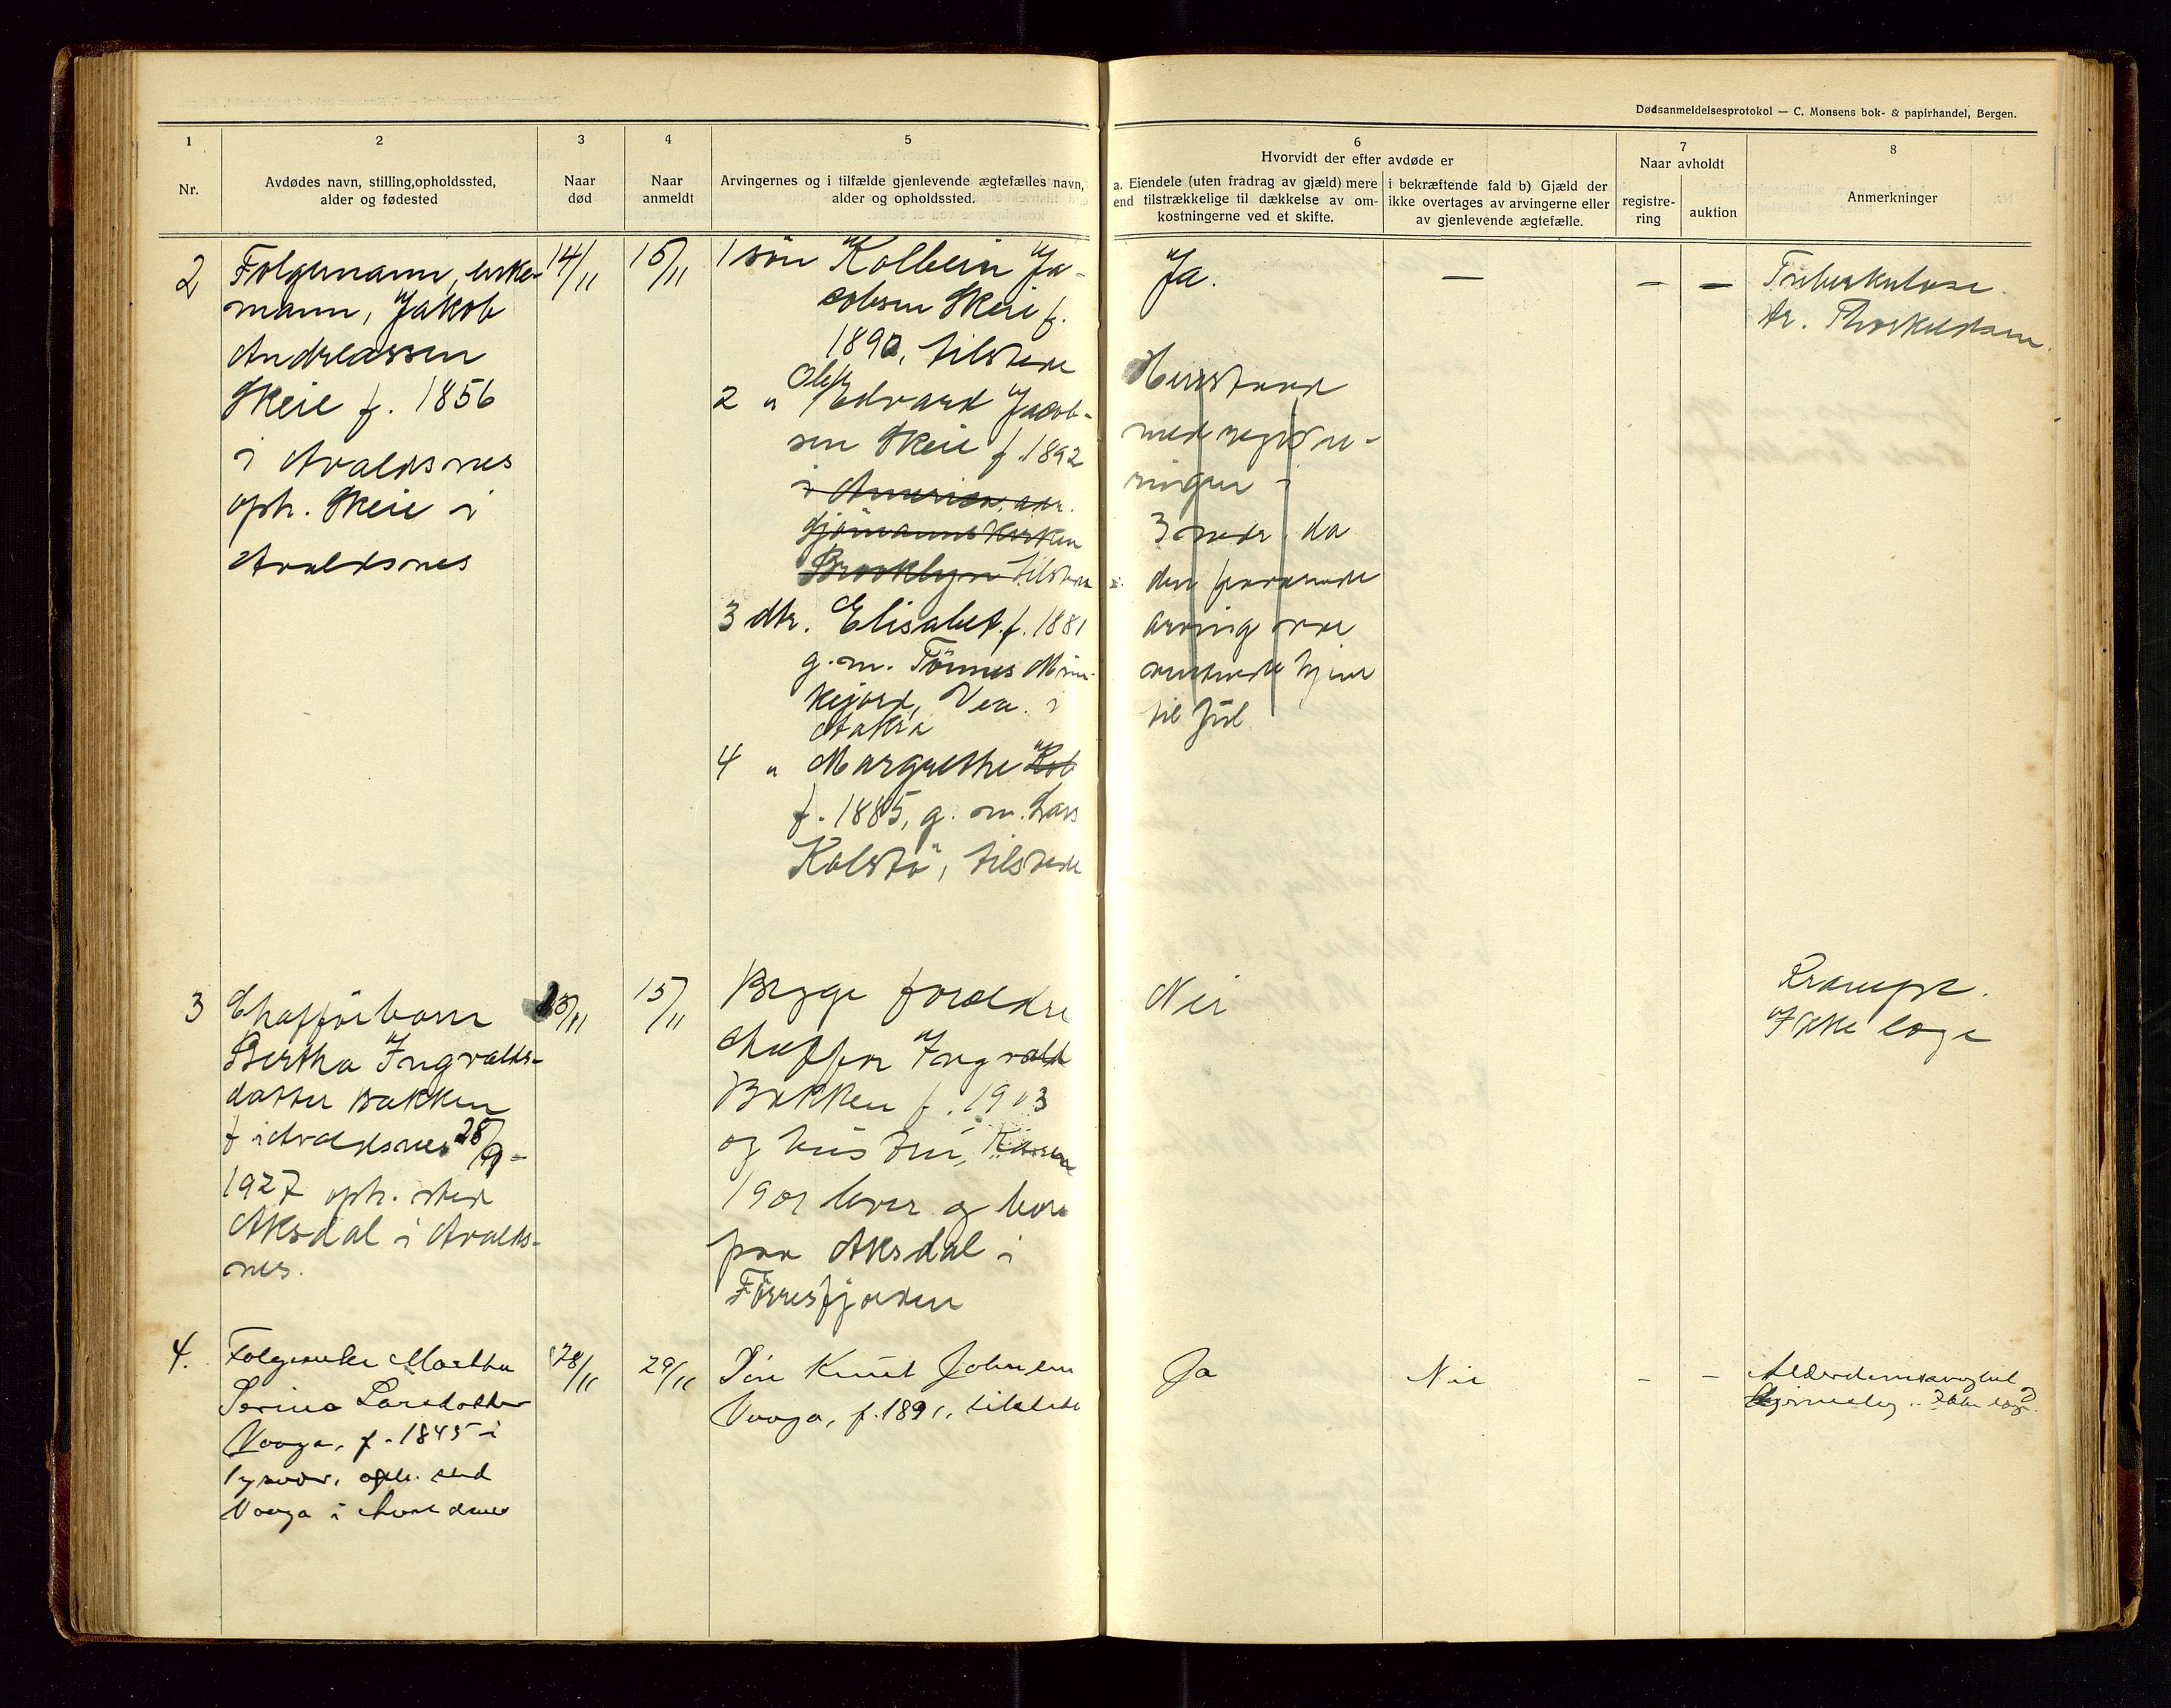 Dødsanmeldelsesprotokol — C. Monsens bok- & papirhandel, Bergen.
1
Nr.
2
Avdødes navn, stilling, opholdssted,
alder og fødested
3
Naar
død
4
Naar
anmeldt
5
Arvingernes og i tilfælde gjenlevende ægtefælles navn,
alder og opholdssted.
6
Hvorvidt der efter avdøde er
a. Eiendele (uten fradrag av gjæld) mere
end tilstrækkelige til dækkelse av om-
kostningerne ved et skifte.
i bekræftende fald b) Gjæld der
ikke overtages av arvingerne eller
av gjenlevende ægtefælle.
7
Naar avholdt
registre-
ring
auktion
8
Anmerkninger
2
Folgemann, enke-
mann, Jakob
Andreassen
Skeie f. 1856
i Avaldsnes
oph. Skeie i
Avaldsnes
14/11
15/11
1 søn Kolbein Ja-
cobsen Skeie f.
1890, tilstede
2 " Olaf Edvard Jacob-
sen Skeie f. 1892
i Amerika, adr.
Sjömannskirken
Brooklyn tilstede
3 dtr. Elisabet f. 1881
g. m. Tönnes Mun-
kejord, Vea i
Aakra
4 " Margrethe Kol
f. 1885, g. m. Lars
Kolstö, tilstede
Ja.
Henstaar
med registre-
ringen i
3 mdr. da
den
arving
ventende hjem
til Jul
—
—
—
Tuberkulose.
dr. Thorkildsen.
3
Chafförbarn
Bertha Ingvalds-
datter Bakken
f i Avaldsnes 28/9 -
1927 oph. sted
Aksdal i Avalds-
nes.
13/11
15/11
Begge forældre
chaffør Ingvald
Bakken f. 1903
og hustru, Karen
1901 lever og bor
paa Aksdal i
Förresfjorden
Nei
Krampe.
Ikke læge
4.
Folgeenke Martha
Serina Larsdatter
Vaaga, f. 1845 i
Tysvær, oph. sted
Vaaga i Avaldsnes
28/11
29/11
Søn Knut Johnsen
Vaaga, f. 1891, tilstede
Ja
Nei
-
-
Alderdomssvaghet
Ikke læge.